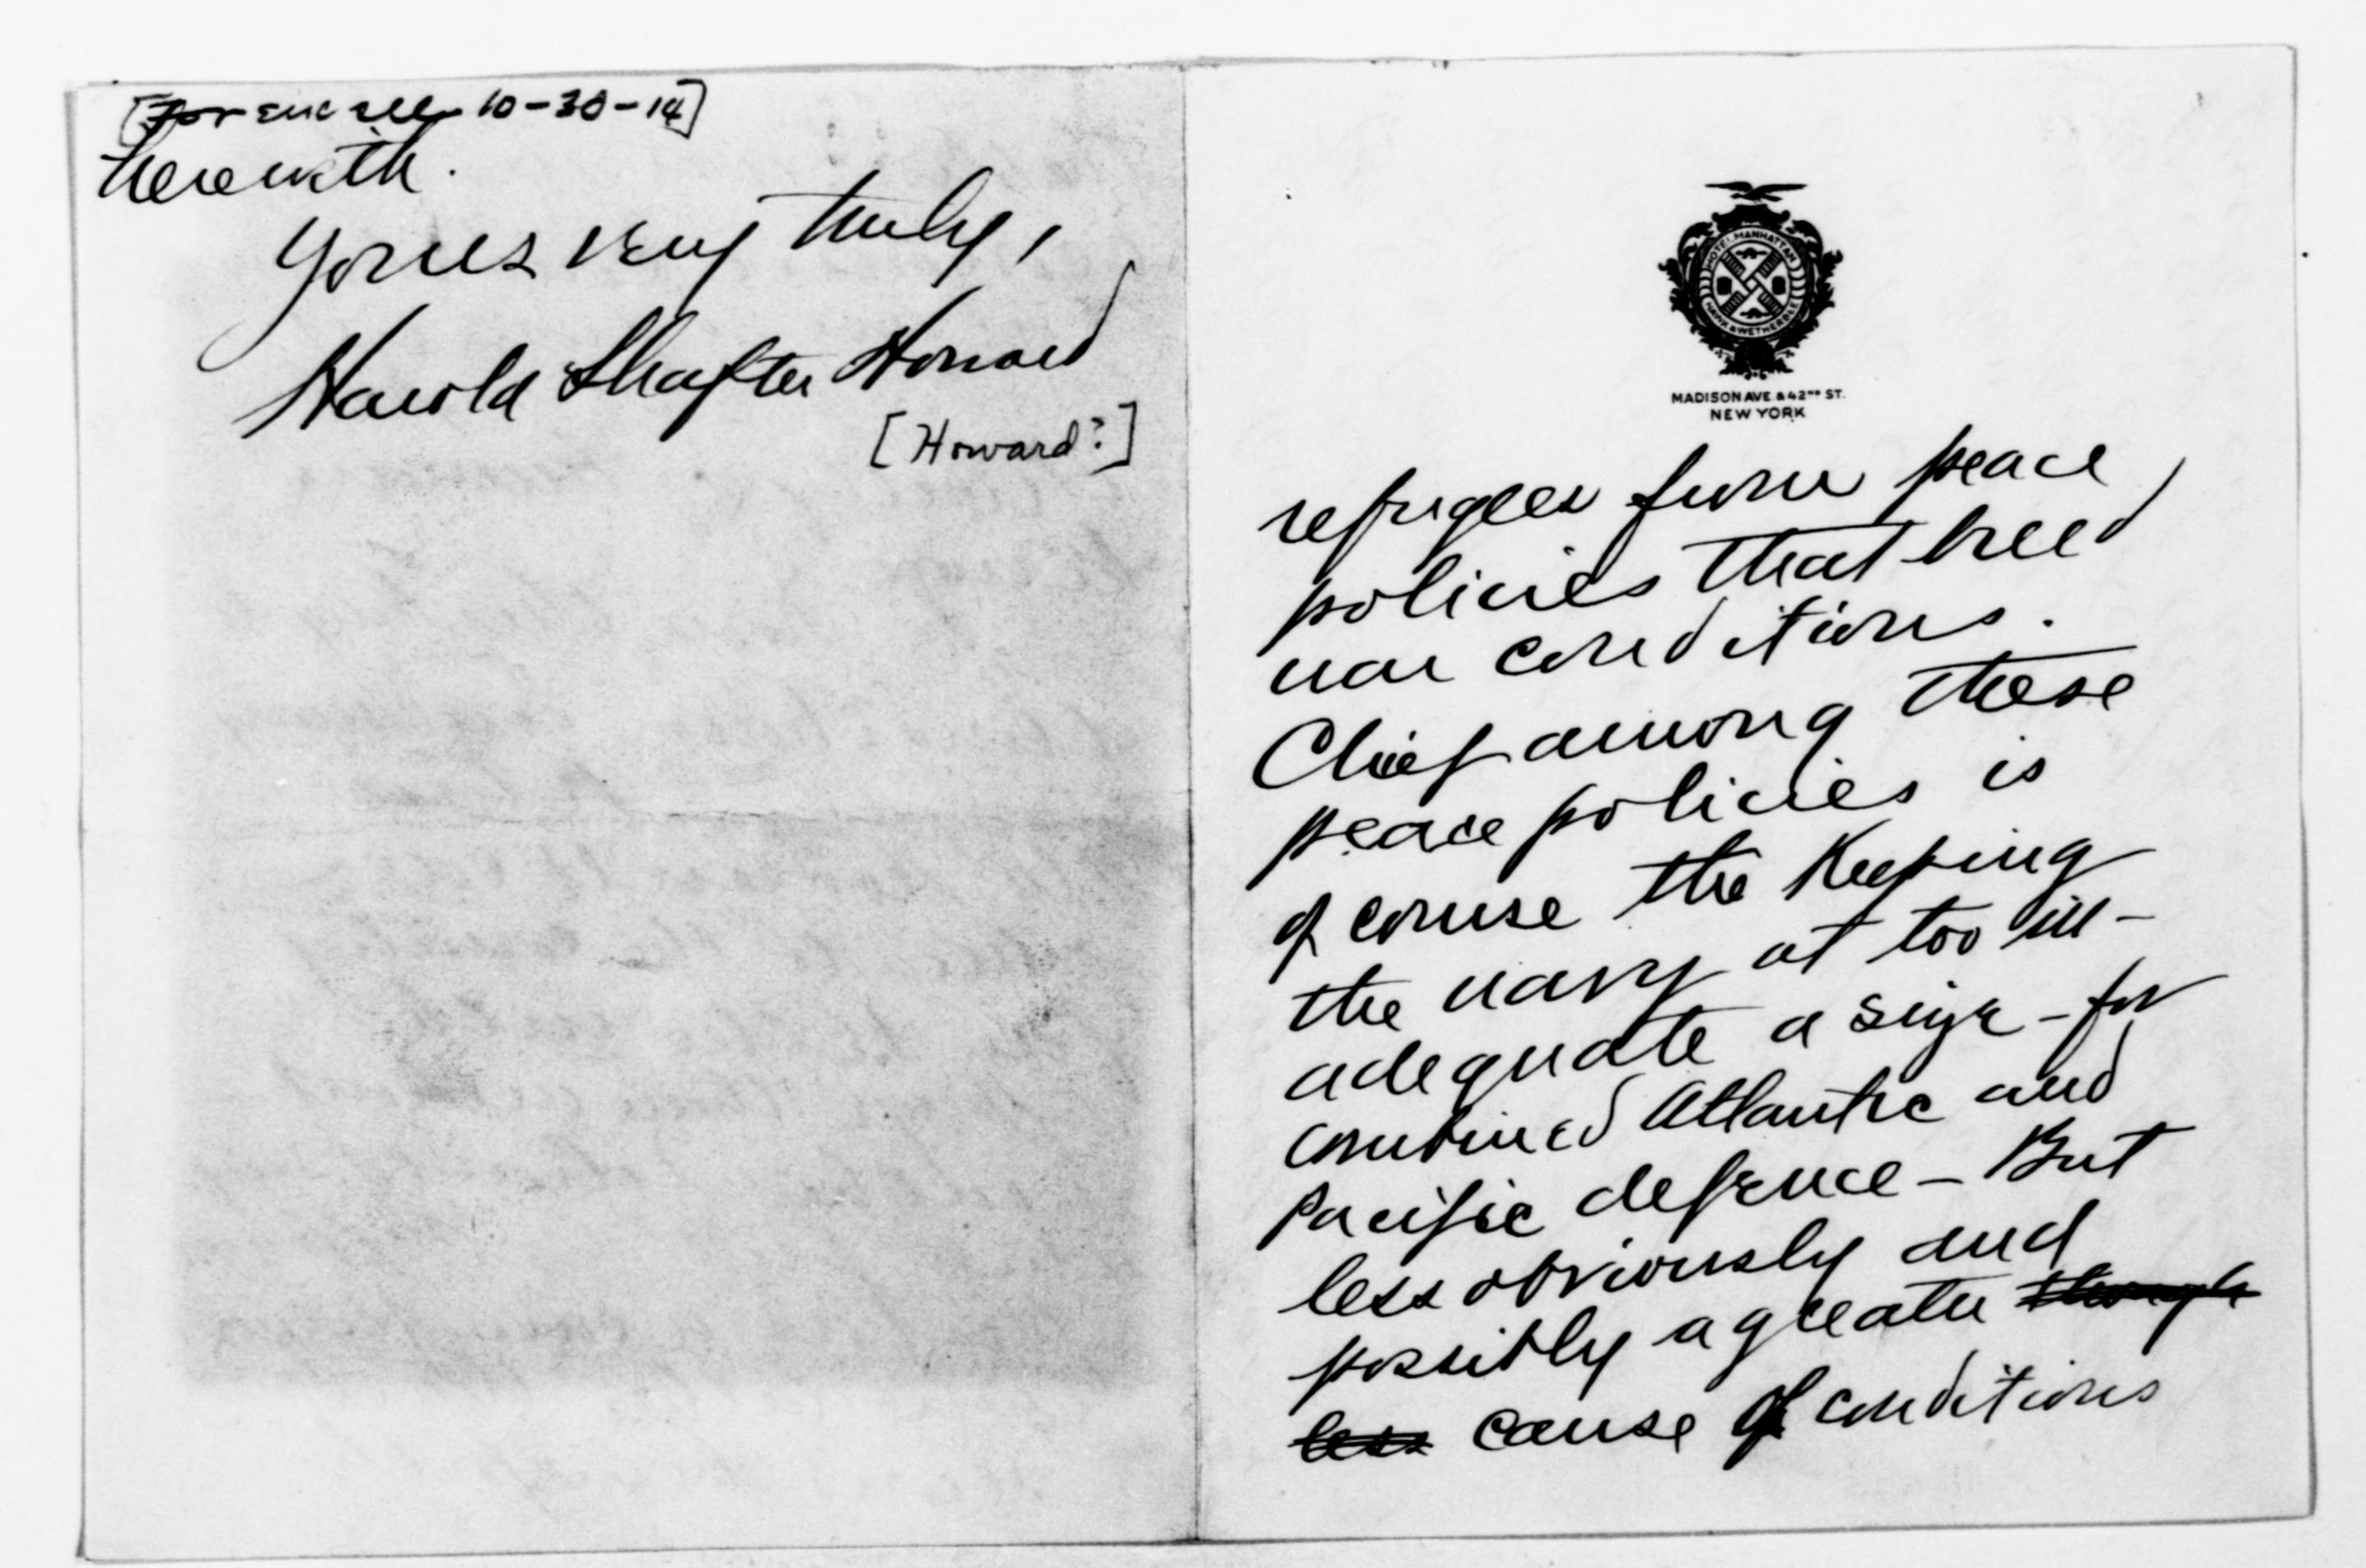 [For enc see 10-30-14]
herewith.
Yours very truly,
Harold Shafter Howard
[Howard?]
HOTEL MANHATTAN
HAWK & WETHERBEE
MADISON AVE. & 42ND ST.
NEW YORK
refugees from peace
policies that breed
war conditions.
Chief among these
peace policies is
of course the keeping
the navy at too in-
adequate a size - for
combined Atlantic and
Pacific defence - But
less obviously and
possibly a greater though
less cause of conditions